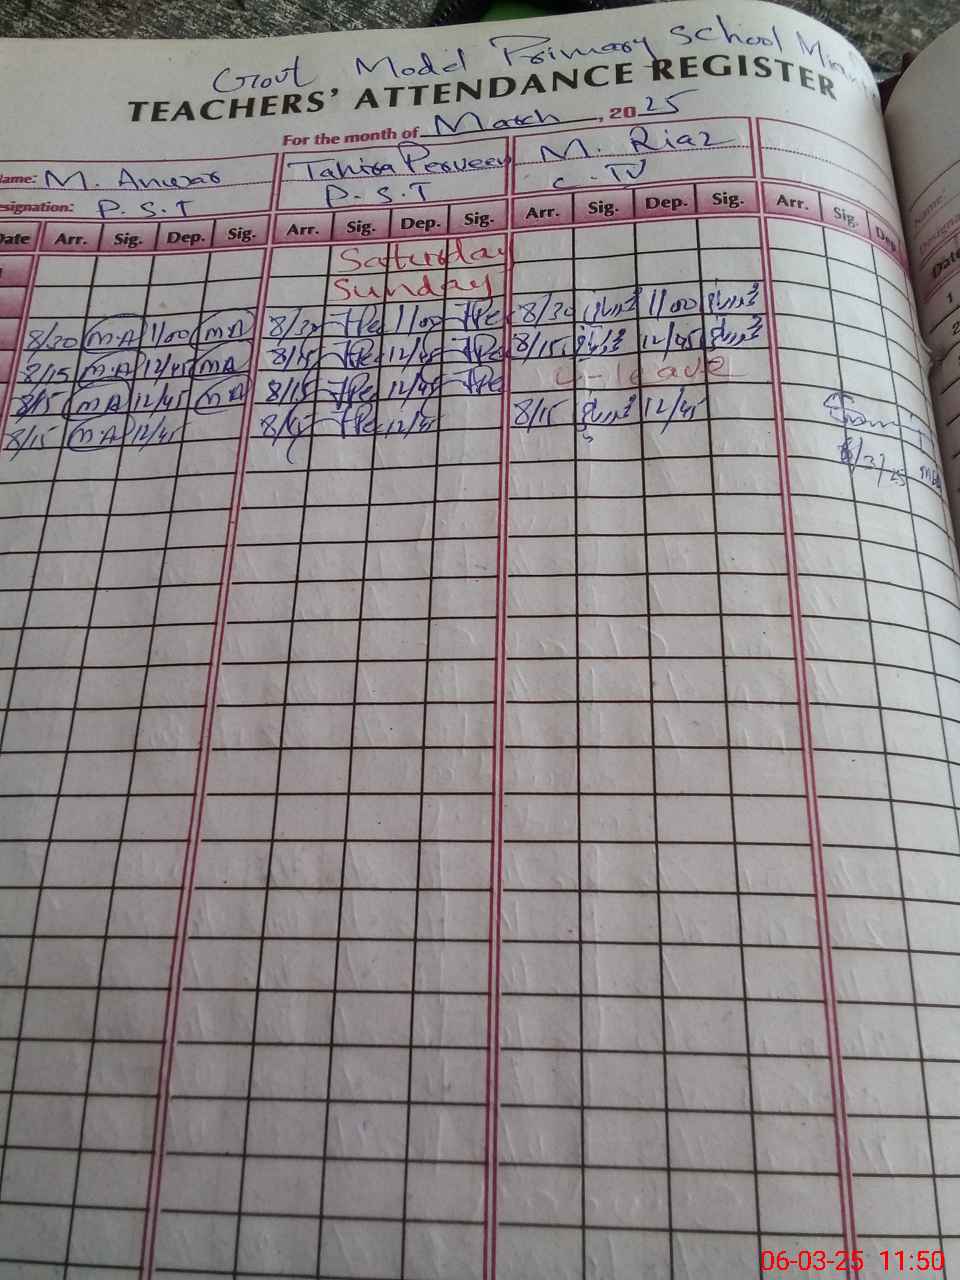 Govt Model Primary School
TEACHERS' ATTENDANCE REGISTER
For the month of March, 2025
ame: M. Anwar Tahira Perveen M. Riaz
esignation: P.S.T P.S.T C.T IV
Date Arr. Sig. Dep. Sig. Arr. Sig. Dep. Sig. Arr. Sig. Dep. Sig. Arr. Sig. Dep
Saturday
Sunday
8/30 M.A 1/00 M.A 8/30 1/00 8/30 1/00
8/15 M.A 12/45 M.A 8/15 12/45 8/15 12/45
8/15 M.A 12/45 M.A 8/15 12/45 C-leave
8/15 M.A 12/45 8/15 12/45 8/15 12/45
6/3/25
Name
Date
1
2
06-03-25 11:50